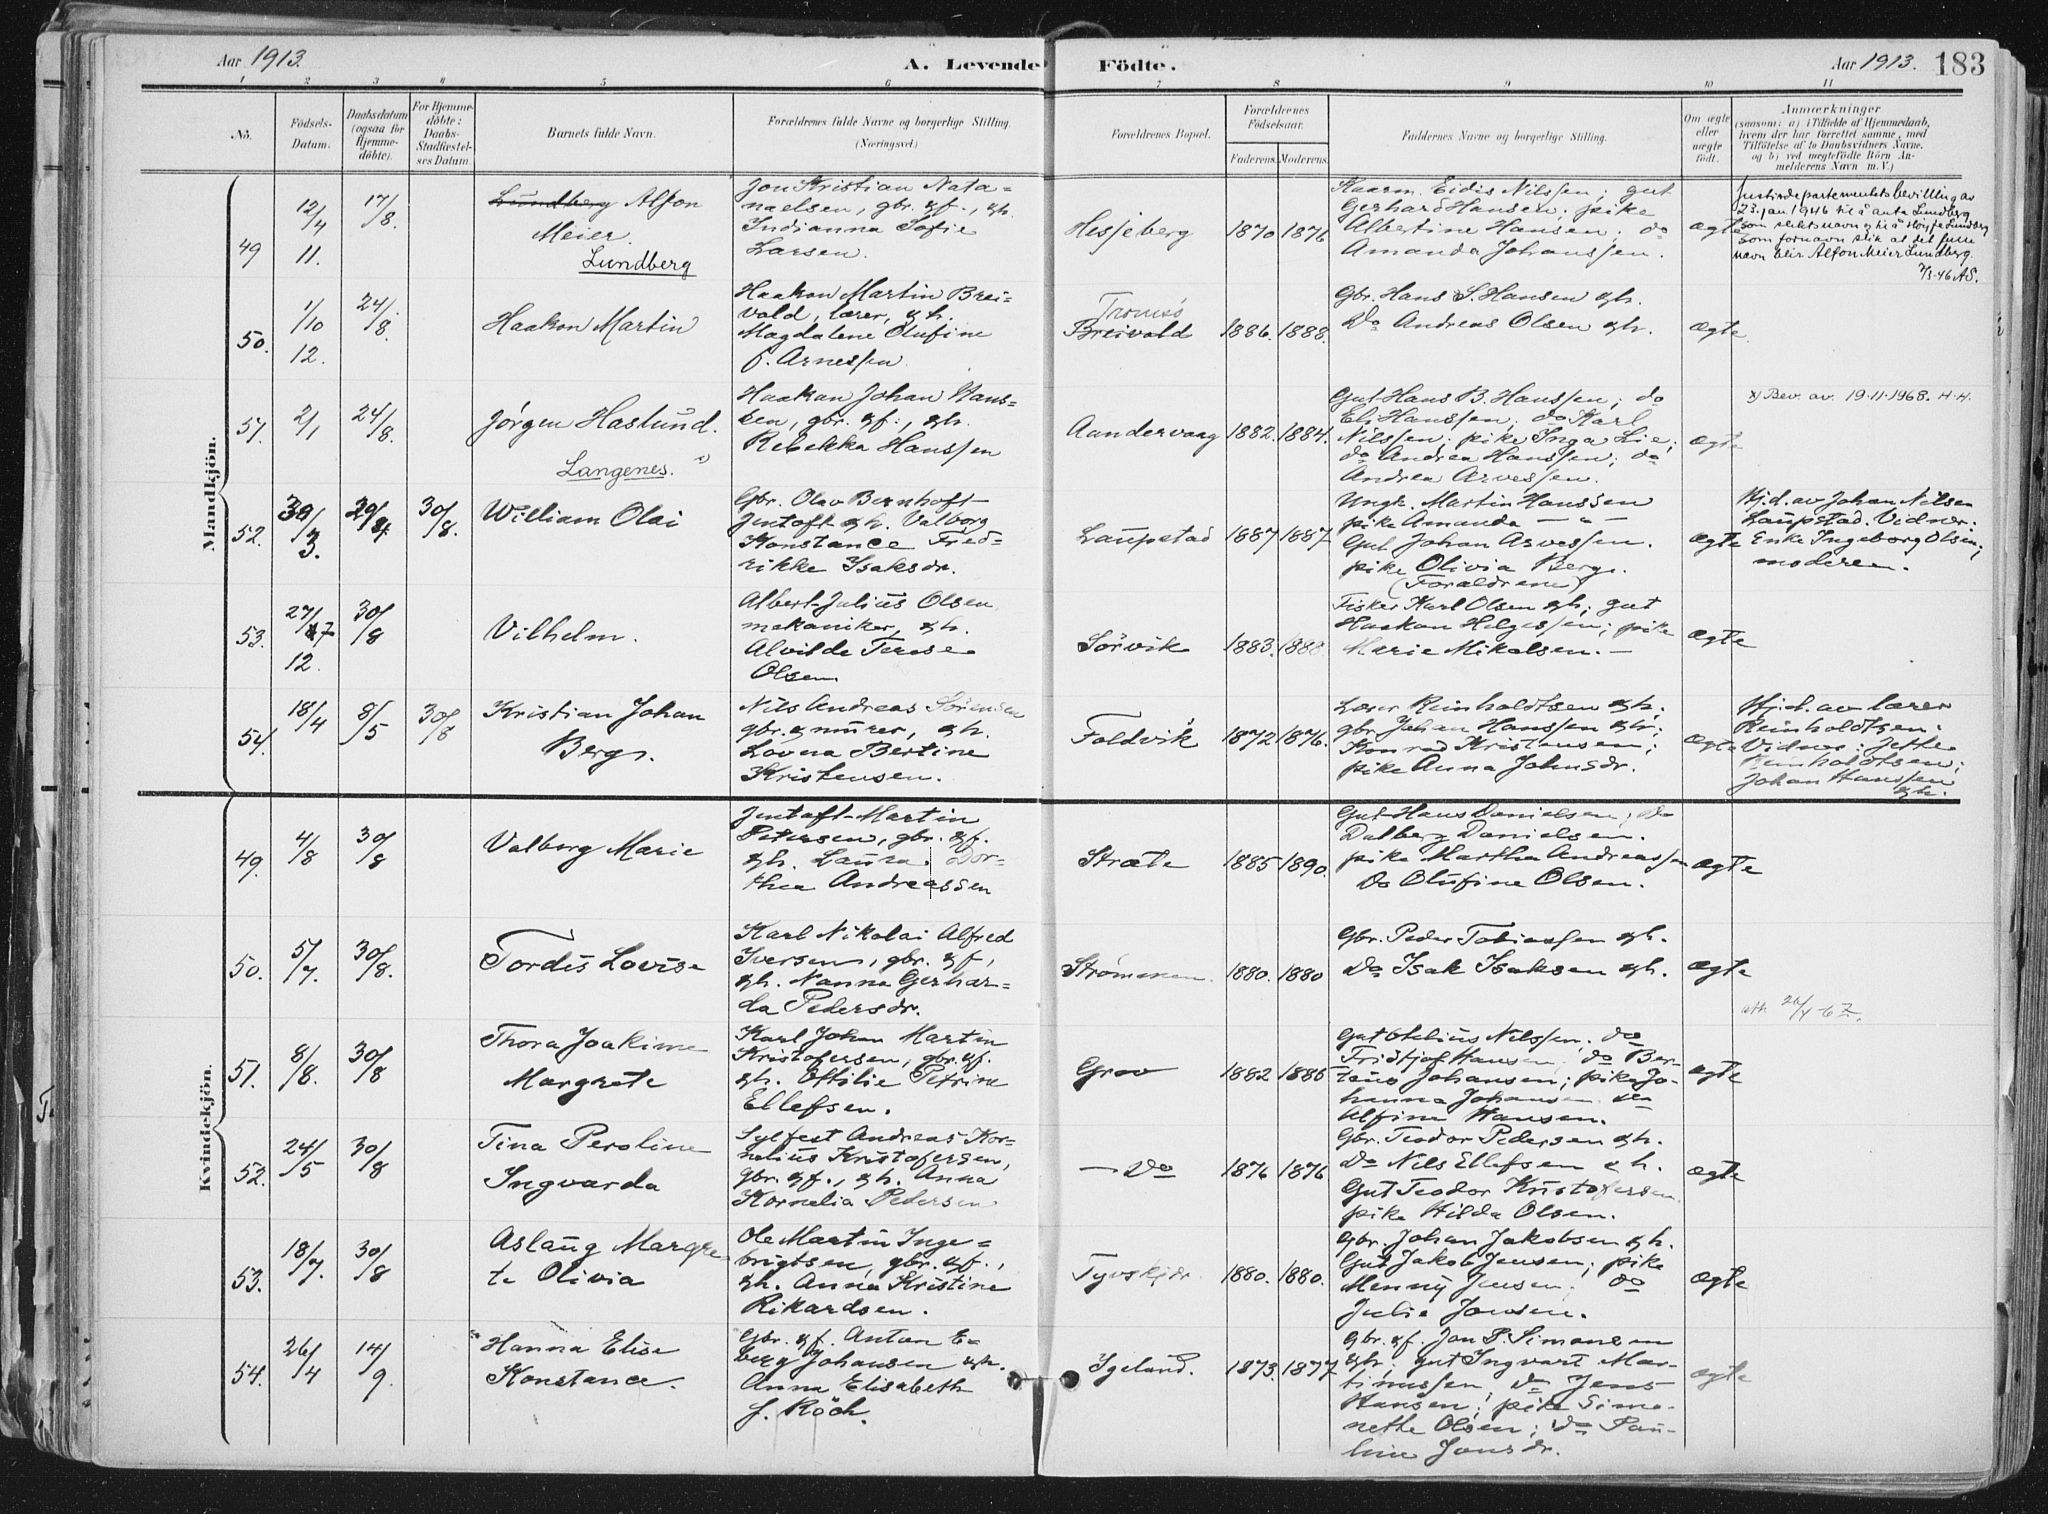 Aar 1913.
A. Levende Födte.
Aar 1913. 183
1 2 3 4 5 6 7 8 9 10 11
No.
Födsels-Datum.
Daabsdatum (ogsaa for Hjemmedöbte).
For Hjemmedöbte: Daabs-Stadfæstelses Datum.
Barnets fulde Navn.
Forældrenes fulde Navne og borgerlige Stilling. (Næringsvei.)
Forældrenes Bopæl.
Forældrenes Födselsaar.
Faderens. Moderens.
Faddernes Navne og borgerlige Stilling.
Om ægte eller uægte födt.
Anmærkninger
(saasom: a) i Tilfælde af Hjemmedaab, hvem der har forrettet samme, med Tilföielse af to Daabsvidners Navne. og b) ved uægtefödte Börn Anmelderens Navn m. V.)
Mandkjön.
49
12/4 11.
17/8.
Lundberg Alfon
Meier.
Lundberg
Jon Kristian Nata-
naelsen, gbr. & f., & h.
Indianna Sofie
Larsen.
Hesjeberg
1870 1876
Kaarm. Eidis Nilssen; gut
Gerhard Hansen; pike
Albertine Hansen; do
Amanda Johanssen.
ægte
Justisdepartementets bevilling av
23. jan 1946 til å anta Lundberg
som slektsnavn og til å sløyfe Lundberg
som fornavn slik at det fulle
navn blir Alfon Meier Lundberg.
7/3-46 AS.
50.
1/10 12.
24/8.
Haakon Martin
Haakon Martin Brei-
vold, lærer, & h.
Magdalene Olufine
f. Arnessen
Tromsö
Breivold
1886. 1888.
Gbr. Hans S. Hansen & h.
Do Andreas Olsen & h.
ægte
51.
2/1
24/8.
Jørgen Haslund.
Langenes. x)
Haakon Johan Hans-
sen, gbr. & f., & h.
Rebekka Hanssen
Aandervaag
1882. 1884.
Gut Hans B. Hanssen; do
Eli Hanssen; do Karl
Nilssen; pike Inga Lie;
do Andrea Hanssen; do
Andrea Arvessen.
ægte
x) Bev. av. 19.11.1968. H.H.
52.
30/3.
29/4.
30/8.
William Olai
Gbr. Olav Bernhoft
Jentoft & h. Valborg
Konstance Fred-
rikke Isaksdr.
Laupstad
1887 1887
Ungk. Martin Hanssen
pike Amanda — " —
Gut Johan Arvessen.
pike Olivia Berg.
(Forældrene)
ægte
Hjd. av Johan Nilsen
Laupstad. Vidner:
Enke Ingeborg Olsen,
moderen.
53.
27/7 12.
30/8
Vilhelm.
Albert Julius Olsen
mekaniker, & h.
Alvilde Terese
Olsen.
Sörvik
1883. 1888.
Fisker Karl Olsen & h; gut
Haakon Helgessen; pike
Marie Mikalsen. —
ægte
54.
18/4
8/5
30/8
Kristian Johan
Berg.
Nils Andreas Sörensen
gbr. & murer, & h.
Lovna Bertine
Kristensen.
Foldvik
1872 1876.
Lærer Reinholdtsen & h.
gbr Johan Hanssen & h;
Konrad Kristensen;
pike Anna Johnsdr.
ægte
Hjd. av lærer
Reinholdtsen.
Vidner: Jette
Reinholdtsen;
Johan Hanssen
& h.
Kvindekjön.
49.
4/8
30/8
Valborg Marie
Jentoft Martin
Petersen, gbr. & f.
& h. Laura Dor-
thea Andreassen
Stræte
1885 1890.
Gut Hans Danielsen; do
Dalberg Danielsen.
pike Martha Andreassen
Do Olufine Olsen.
ægte
50.
5/7
30/8.
Tordis Lovise
Karl Nikolai Alfred
Iversen, gbr. & f,
& h. Nanna Gerhar-
da Pedersdr.
Strømmen.
1880. 1880
Gbr. Peder Tobiassen & h.
Do Isak Isaksen & h.
ægte
51.
8/8.
30/8
Thora Joakime
Margrete
Karl Johan Martin
Kristofersen, gbr. & f.
& h. Ottilie Petrine
Ellefsen.
Grov
1882 1886
Gut Otelius Nilssen; do
Fridtjof Hansen; do Ber-
teus Johansen; pike Jo-
hanna Johansen do
Alfine Hansen.
ægte
52.
24/5
30/8
Tina Peroline
Ingvarda
Sylfest Andreas Kor-
nelius Kristofersen,
gbr. & f., & h. Anna
Kornelia Pedersen
— Do
1876 1876
Gbr. Teodor Pedersen & h.
Do Nils Ellefsen & h.
Gut Teodor Kristofersen.
pike Hilda Olsen.
ægte
53.
18/7.
30/8
Aslaug Margre
te Olivia
Ole Martin Inge-
brigtsen, gbr. & f.,
& h. Anna Kristine
Rikardsen.
Tyvskjdr.
1880. 1880.
Gbr. Johan Jakobsen & h.
Gut Jakob Jensen; pike
Menny Jensen; do
Julie Jonsen.
ægte
54.
26/4
14/9
Hanna Elise
Konstance.
Gbr. & f. Anton E-
berg Johansen & h.
Anna Elisabeth
f. Röch.
Igeland.
1873. 1877
Gbr. & f. Jon P. Simonsen
& h; gut Ingvart Mar-
tinussen; do Jens
Hansen; pike Simo-
nethe Olsen; do Pau-
line Jonsdr.
ægte